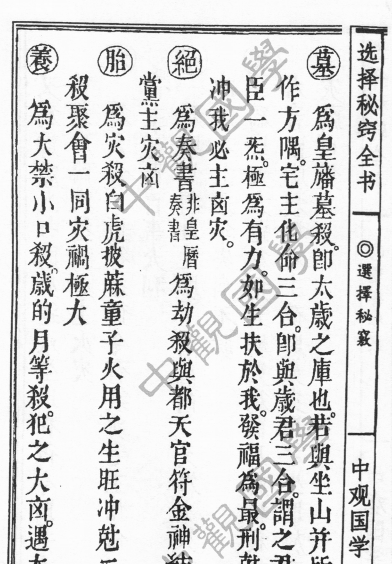 选择秘窍全书
◎選擇秘竅
中观国学
墓 爲皇旛墓殺。卽太歲之庫也。若與坐山并
作方隅。宅主化命三合。卽與歲君三合。謂之君
臣一炁。極爲有力。如生扶於我。發福爲最。刑尅
冲我必主凶灾。
絕 爲奏書 非皇曆奏書 爲劫殺與都天官符金神
黨主灾凶
胎 爲灾殺白虎披蔴童子火用之生旺冲尅
殺聚會一同灾禍極大
養 爲大禁小口殺。歲的月等殺。犯之大凶。遇
中觀國學
中觀國學
中觀國學